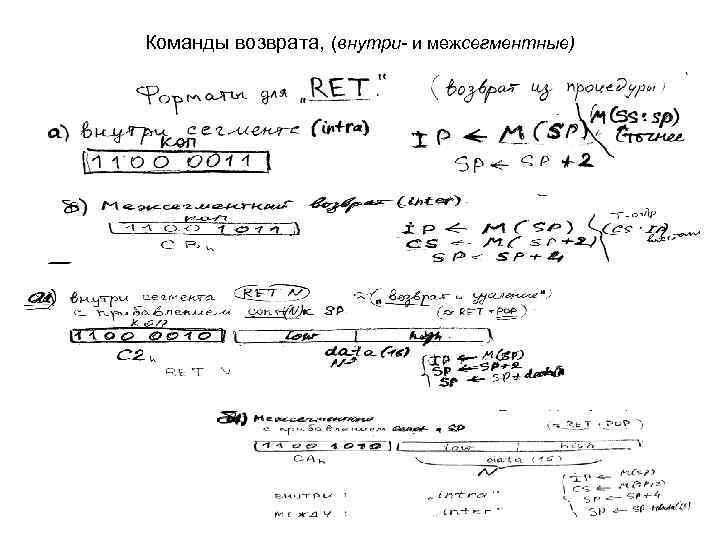 Команды возврата, (внутри- и межсегментные)
Форматы для „RET." (возврат из процедуры)
а) внутри сегмента (intra) IP ← M(SP) M(SS:SP) (точнее
коп
1100 0011 SP ← SP + 2
б) Межсегментный возврат (inter).
коп
1100 1011 IP ← M(SP)
CS ← M(SP+2)
SP ← SP+4
внутри сегмента RET N ≈ („возврат и удаление")
с прибавлением const(N) к SP (≈ RET+POP)
коп
1100 0010 low high
C2h data(16) IP ← M(SP)
N SP ← SP+2
RET SP ← SP+data
Межсегментный
с прибавлением const к SP (≈ RET+POP)
1100 1010 low high
CAh data(16)
N IP ← M(SP)
ВНУТРИ: „intra" CS ← M(SP+2)
SP ← SP+4
МЕЖДУ: „inter" SP ← SP+data(16)